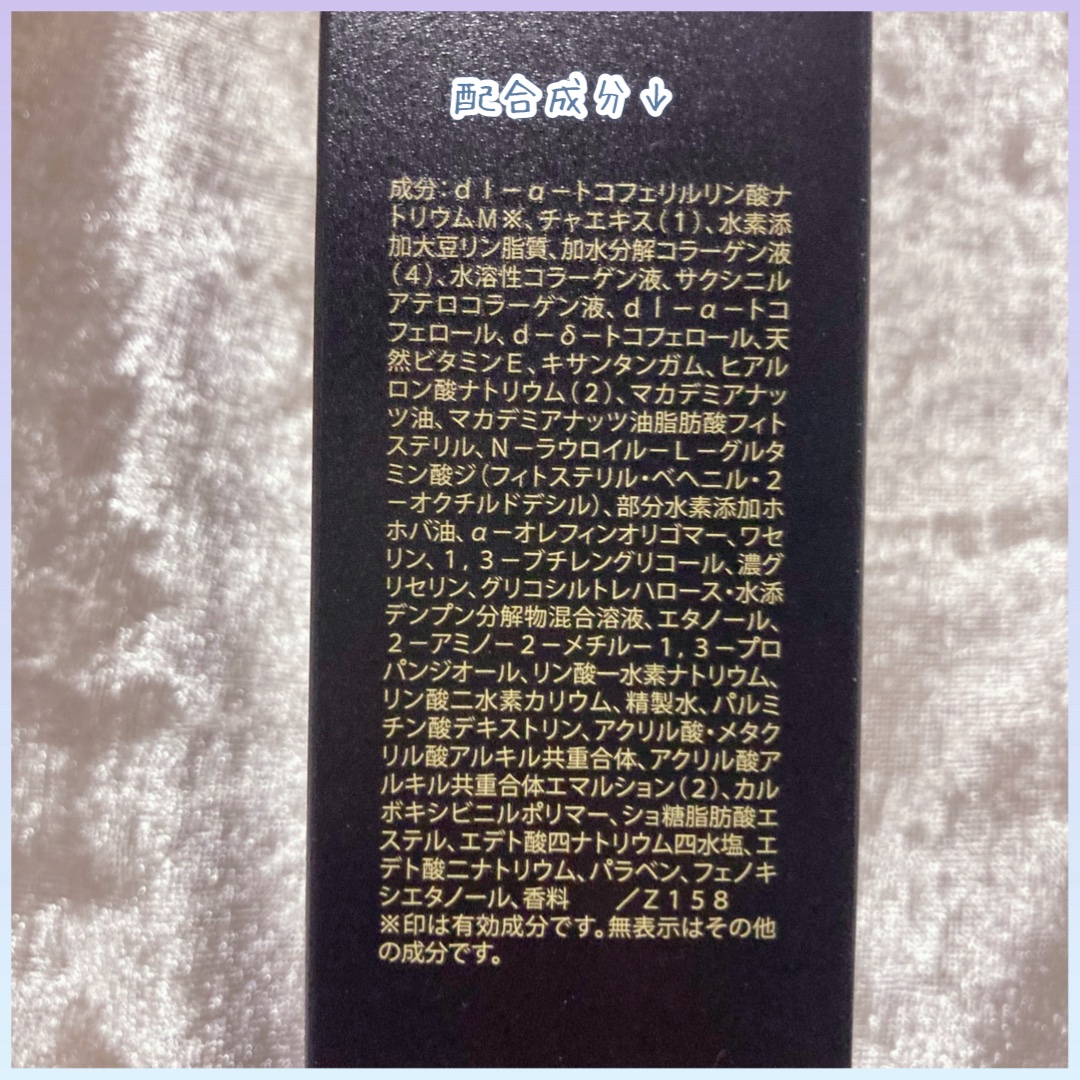 配合成分↓
成分：ｄｌ－α－トコフェリルリン酸ナ
トリウムＭ※、チャエキス（１）、水素添
加大豆リン脂質、加水分解コラーゲン液
（４）、水溶性コラーゲン液、サクシニル
アテロコラーゲン液、ｄｌ－α－トコ
フェロール、ｄ－δ－トコフェロール、天
然ビタミンＥ、キサンタンガム、ヒアル
ロン酸ナトリウム（２）、マカデミアナッ
ツ油、マカデミアナッツ油脂肪酸フィト
ステリル、Ｎ－ラウロイル－Ｌ－グルタ
ミン酸ジ（フィトステリル・ベヘニル・２
－オクチルドデシル）、部分水素添加ホ
ホバ油、α－オレフィンオリゴマー、ワセ
リン、１，３－ブチレングリコール、濃グ
リセリン、グリコシルトレハロース・水添
デンプン分解物混合溶液、エタノール、
２－アミノ－２－メチル－１，３－プロ
パンジオール、リン酸一水素ナトリウム、
リン酸二水素カリウム、精製水、パルミ
チン酸デキストリン、アクリル酸・メタク
リル酸アルキル共重合体、アクリル酸ア
ルキル共重合体エマルション（２）、カル
ボキシビニルポリマー、ショ糖脂肪酸エ
ステル、エデト酸四ナトリウム四水塩、エ
デト酸二ナトリウム、パラベン、フェノキ
シエタノール、香料　　／Ｚ１５８
※印は有効成分です。無表示はその他
の成分です。